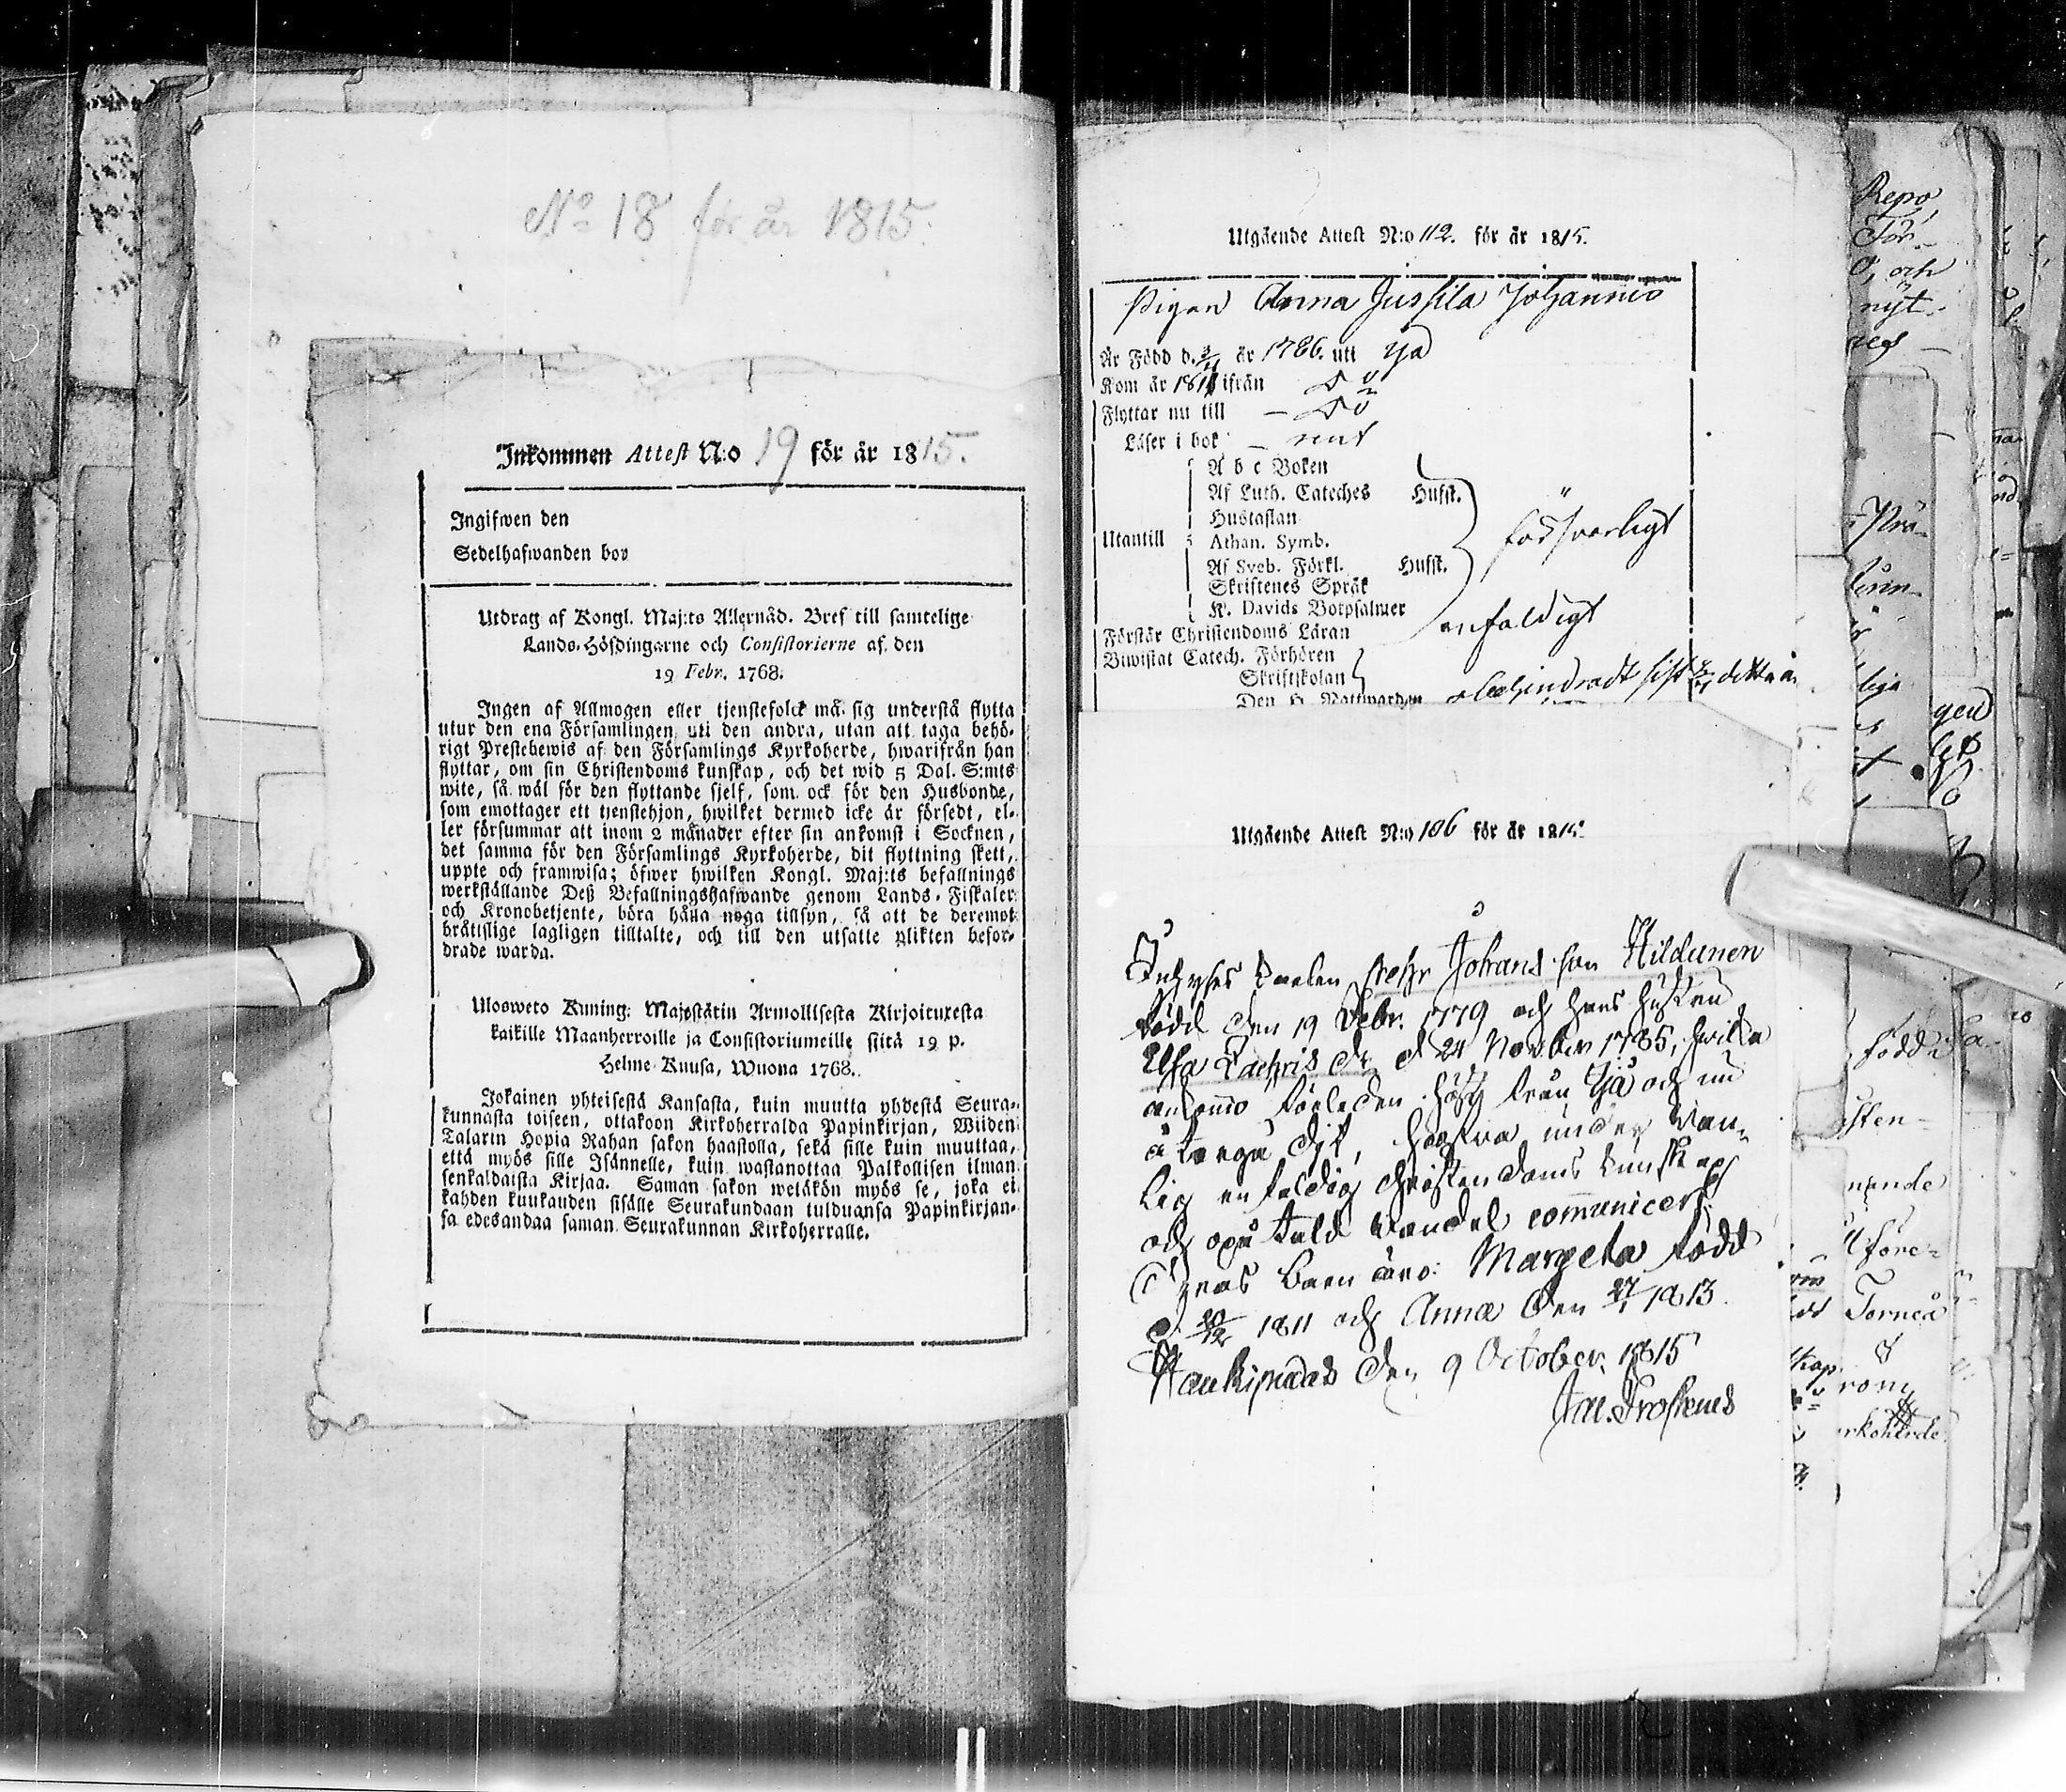 No 18 för år 1815.
Inkommen Attest N:o 19 för år 1815.
Ingifwen den
Sedelhafwanden bor
Utdrag af Kongl. Maj:ts Allernåd. Bref till samtelige
Lands-Höfdingarne och Consistorierne af den
19 Febr. 1768.
Ingen af Allmogen eller tjenstefolck må sig understå flytta
utur den ena Församlingen uti den andra, utan att taga behö-
rigt Prestebewis af den Församlings Kyrkoherde, hwarifrån han
flyttar, om sin Christendoms kunskap, och det wid 5 Dal. S:mts
wite, så wäl för den flyttande sjelf, som ock för den Husbonde,
som emottager ett tjenstehjon, hwilket dermed icke är försedt, el-
ler försummar att inom 2 månader efter sin ankomst i Socknen,
det samma för den Församlings Kyrkoherde, dit flyttning skett,
uppte och framwisa; öfwer hwilken Kongl. Maj:ts befallnings
werkställande Deß Befallningshafwande genom Lands-Fiskaler
och Kronobetjente, böra hålla noga tillsyn, så att de deremot
brätslige lagligen tilltalte, och till den utsatte plikten befor-
drade warda.
Ulosweto Kuning: Majestätin Armollisesta Kirjoituxesta
kaikille Maanherroille ja Consistoriumeille siitä 19 p.
Helme-Kuusa, Wuona 1768.
Jokainen yhteisestä Kansasta, kuin muutta yhdestä Seura-
kunnasta toiseen, ottakoon Kirkoherralda Papinkirjan, Wiiden
Talarin Hopia Rahan sakon haastolla, sekä sille kuin muuttaa,
että myös sille Isännelle, kuin wastanottaa Palkollisen ilman
senkaldaista Kirjaa. Saman sakon wetäkön myös se, joka ei
kahden kuukauden sisälle Seurakundaan tulduansa Papinkirjan-
sa edesandaa saman Seurakunnan Kirkoherralle.
Utgående Attest N:o 112. för år 1815.
Pigan Anna Jussila Johannis
Är Född d. år 1786. uti Ijo
Kom år 181 ifrån Do
Flyttar nu till – Do
Läser i bok – rent
A b c Boken
Af Luth. Cateches Hufst.
Hustaflan
Utantill Athan. Symb. försvarligt
Af Sveb. Förkl. Hufst.
Skriftenes Språk
K. Davids Botpsalmer
Förstår Christendoms Läran enfaldigt
Biwistat Catech. Förhören
Skriftskolan
Den H. Nattwarden obehindradt sist detta år
Utgående Attest N:o 106 för år 1815.
Inhyses Johans son Hildunen
född den 19 Febr. 1779 och hans hustru
Elsa d. 24 November 1785, hvilka
förleden höst från Ijå och nu
återgå dit, hafva under van-
lig enfaldig christendoms kunskap
och vandel communicert.
Deras barn äro: Margeta född
d. 20/12 1811 och Anna den 27/1 1813.
Haukipudas den 9 October 1815
Jac. Frosterus
Repo
och
nyt
född
sten-
Torneå